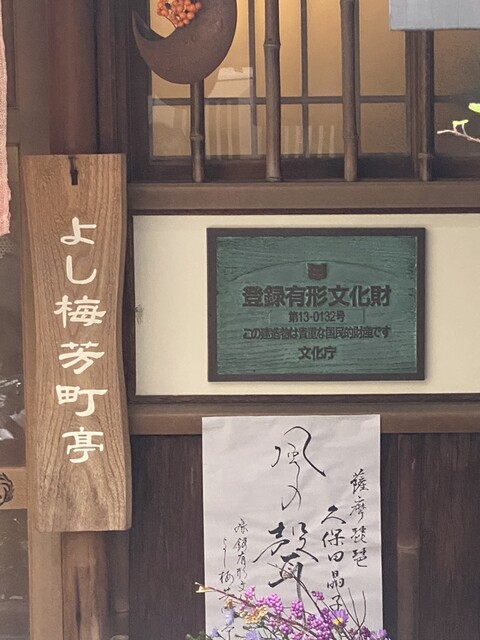 よし梅芳町亭
登録有形文化財
第13-0132号
この建造物は貴重な国民的財産です
文化庁
薩摩琵琶
久保田晶子
風の聲